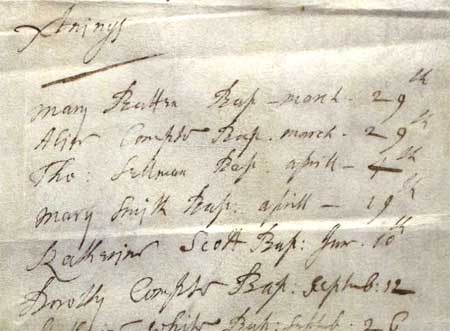 Mary Batten Bap – march. 29th
Alice Compto Bap. march. 29th
Tho: Sellman Bap. aprill – 4th
Mary Smith Bap: aprill – 19th
Katherine Scott Bap: Jun. 10th
Dorothy Compto Bap: Septeb: 12
White Bap: Septeb: 26